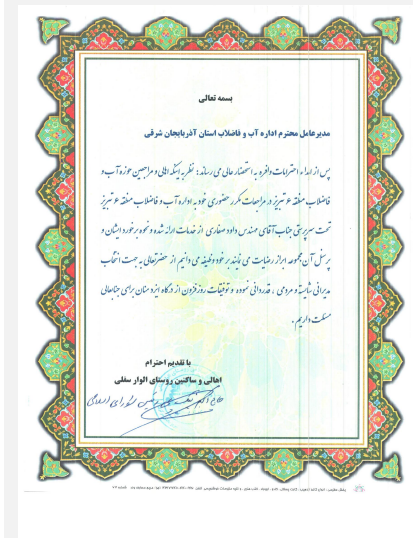 بسمه تعالی
مدیرعامل محترم اداره آب و فاضلاب استان آذربایجان شرقی
پس از اداء احترامات وافره به استحضار عالی می رساند : نظر به اینکه اهالی و مراجعین حوزه آب و
فاضلاب منطقه ۶ تبریز در مراجعات مکرر حضوری خود به اداره آب و فاضلاب منطقه ۶ تبریز
تحت سرپرستی جناب آقای مهندس داود صفاری از خدمات ارائه شده و نحوه برخورد ایشان و
پرسنل آن مجموعه ابراز رضایت می نمایند بر خود وظیفه می دانیم از حضرتعالی به جهت انتخاب
مدیرانی شایسته و مردمی ، قدردانی نموده و توفیقات روزافزون از درگاه ایزد منان برای جنابعالی
مسئلت داریم .
با تقدیم احترام
اهالی و ساکنین روستای الوار سفلی